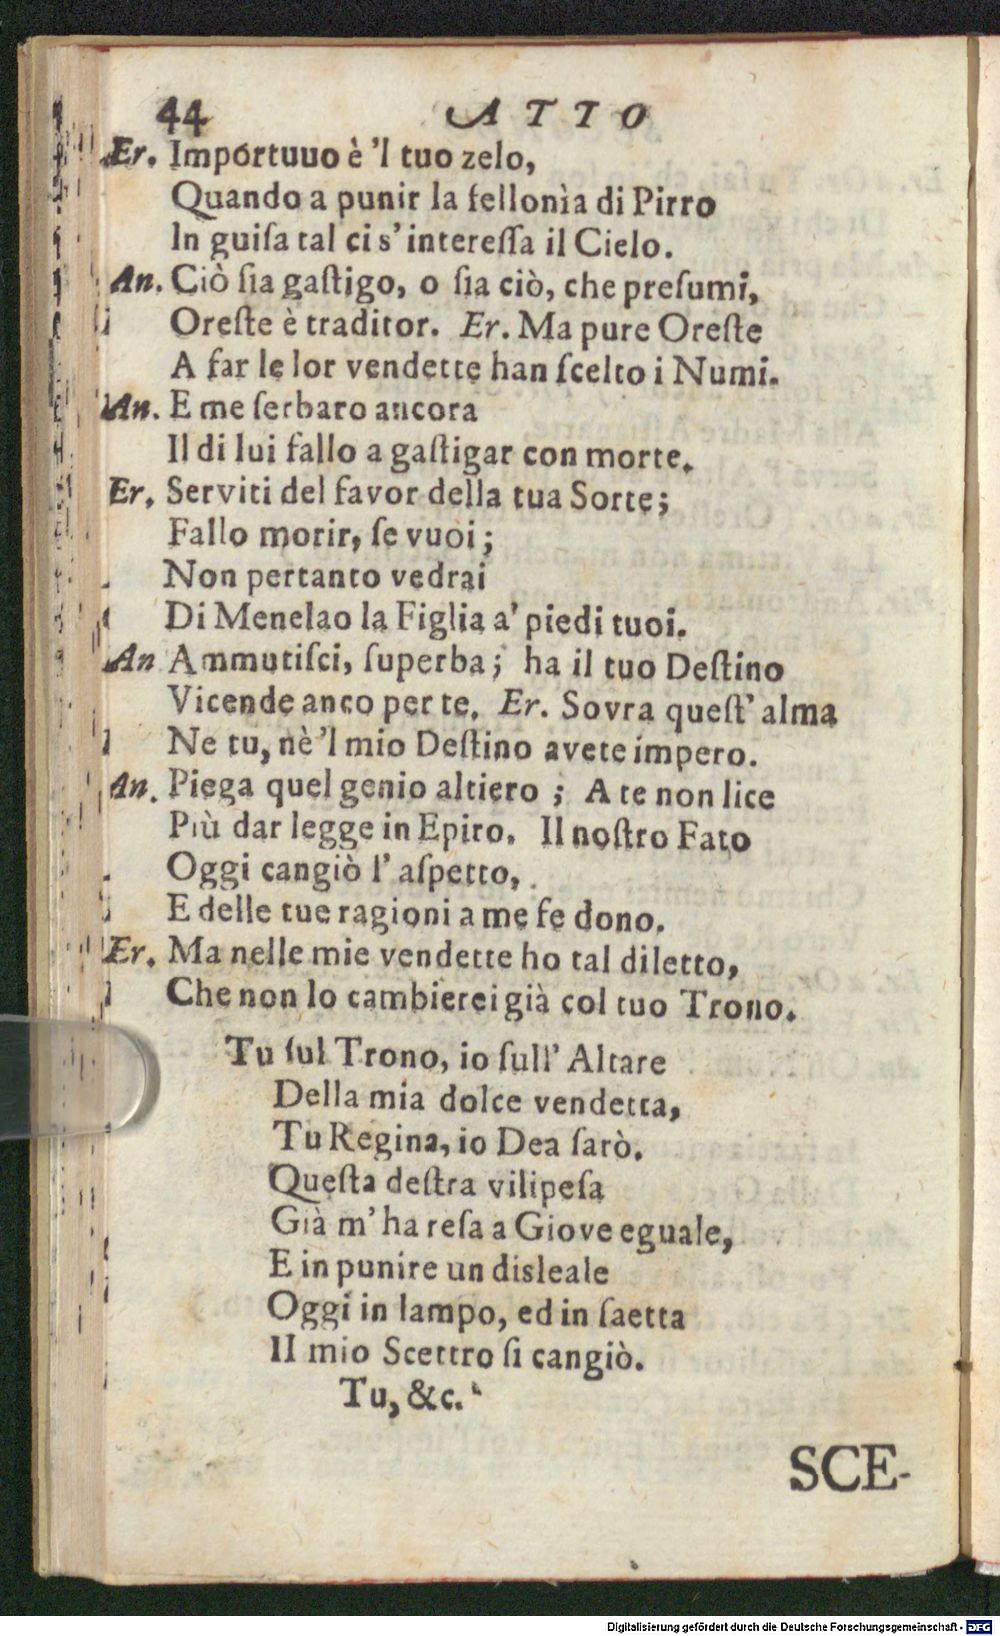 44 ATTO
Er. Importuuo è 'l tuo zelo,
Quando a punir la fellonìa di Pirro
In guiſa tal ci s' intereſſa il Cielo.
An. Ciò ſia gaſtigo, o ſia ciò, che preſumi,
Oreſte è traditor. Er. Ma pure Oreſte
A far le lor vendette han ſcelto i Numi.
An. E me ſerbaro ancora
Il di lui fallo a gaſtigar con morte.
Er. Serviti del favor della tua Sorte;
Fallo morir, ſe vuoi;
Non pertanto vedrai
Di Menelao la Figlia a' piedi tuoi.
An Ammutiſci, ſuperba; ha il tuo Deſtino
Vicende anco per te. Er. Sovra queſt' alma
Ne tu, nè 'l mio Deſtino avete impero.
An. Piega quel genio altiero; A te non lice
Più dar legge in Epiro. Il noſtro Fato
Oggi cangiò l' aſpetto,
E delle tue ragioni a me fe dono.
Er. Ma nelle mie vendette ho tal diletto,
Che non lo cambierei già col tuo Trono.
Tu ſul Trono, io ſull' Altare
Della mia dolce vendetta,
Tu Regina, io Dea ſarò.
Queſta deſtra vilipeſa
Già m' ha reſa a Giove eguale,
E in punire un disleale
Oggi in lampo, ed in ſaetta
Il mio Scettro ſi cangiò.
Tu, &c.
SCE-
Digitalisierung gefördert durch die Deutsche Forschungsgemeinschaft - DFG